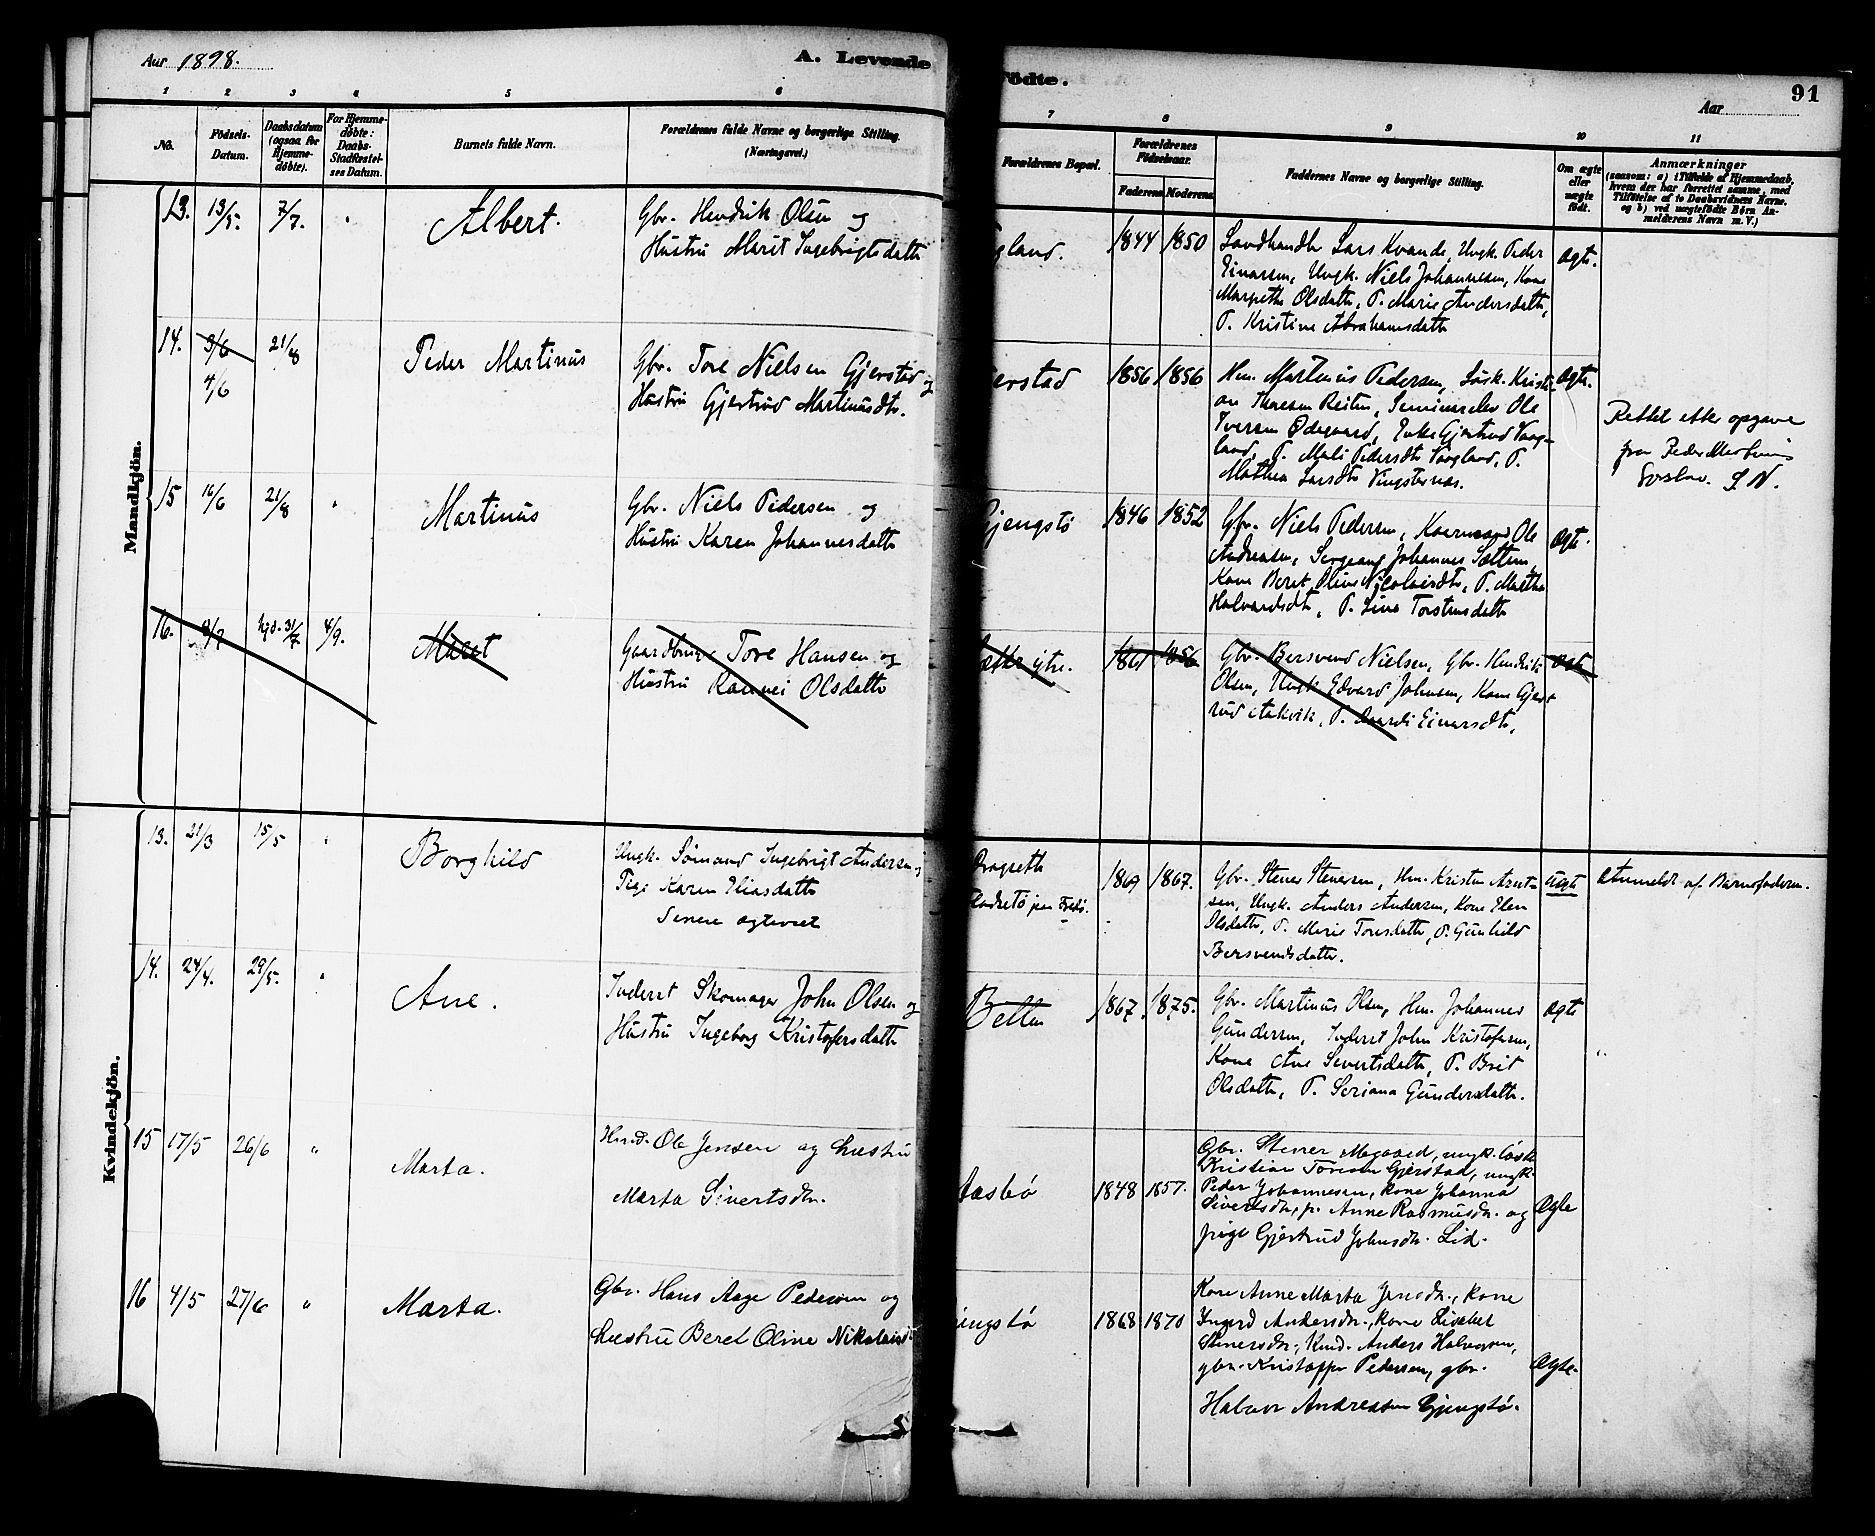 Aar 1898.
A. Levende
Födte.
91
Aar
1 2 3 4 5 6
7 8 9 10 11
No.
Födsels-
Datum.
Daabsdatum
(ogsaa for
Hjemme-
døbte).
For Hjemme-
døbte:
Daabs-
Stadfæstel-
ses Datum.
Barnets fulde Navn.
Forældrenes fulde Navne og borgerlige Stilling.
(Næringsvei.)
Forældrenes Bopæl.
Forældrenes
Födselsaar.
Faderens Moderens
Faddernes Navne og borgerlige Stilling.
Om ægte
eller
uægte
født.
Anmærkninger
(saasom: a) i Tilfælde af Hjemmedaab,
hvem der har forrettet samme, med
Tilföielse af to Daabsvidners Navne.
og b) ved uægtefødte Börn An-
melderens Navn m.V.)
Mandkjön.
13. 13/5. 7/7. " Albert.
Gbr. Hendrik Olsen og
Hustru Marit Ingebrigtsdatter
gland. 1844 1850
Landhandler Lars Kvande, Ungk. Peder
Einarsen, Ungk. Niels Johannesen, Kone
Margrethe Olsdatter, P. Marie Andersdatter,
P. Kristine Abrahamsdatter
ægte.
14. 3/6 21/8 Peder Martinus
4/6
Gbr. Tore Nielsen Gjerstad og
Hustru Gjertrud Martinusdtr.
erstad 1856 1856
Hm. Martinus Pedersen, Løsk. Kristi-
an Thoresen Reiten, Seminarelev Ole
Iversen Ødegaard, Enke Gjertrud Vaag-
land, P. Mali Pedersdtr Vaagland, P.
Mathea Larsdtr Vingsternæs.
ægte.
Rettet etter opgave
fra Peder Martinus
S. N.
15 16/6 21/8 " Martinus
Gbr. Niels Pedersen og
Hustru Karen Johannesdatter
Gjengstø 1846 1852
Gbr. Niels Pedersen, Kaarmand Ole
Andreasen, Sergeant Johannes Sættem,
Kone Beret Oline Nicolaisdtr, P. Martha
Halvardsdtr, P. Line Torstensdatter
ægte.
16. 8/7 hjd. 31/7 4/9. Marit
Gaardbruger Tore Hansen og
Hustru Rannei Olsdatter
ytre. 1861 1856
Gbr. Bersvend Nielsen, Gbr. Hendrik
Olsen, Ungk. Edvard Johnsen, Kone Gjert-
rud Aakvik, P. Guardi Einarsdtr,
ægte
Kvindekjön.
13. 21/3 15/5 " Borghild
Ungk. Sømand Ingebrigt Andersen og
Pige Karen Eliasdatter
Senere ægteviet
Dragsette
1869 1867.
Gbr. Stener Stenersen, Hm. Kristen Arnt-
sen, Ungk. Anders Andersen, Kone Elen
Olsdatter, P. Marie Toresdatter, P. Gunhild
Bersvendsdatter.
Uægte
Anmeldt af Barnefaderen.
14. 24/4. 29/5. " Ane.
Inderst Skomager John Olsen og
Hustru Ingeborg Kristofersdatter
Betten 1867. 1875.
Gbr. Martinus Olsen, Hm. Johannes
Gundersen, Inderst John Kristofersen,
Kone Ane Sivertsdatter, P. Brit
Olsdatter, P. Seriana Gundersdatter.
ægte
15 17/5 26/6 " Marta.
Husmd. Ole Jensen og hustru
Marta Sivertsdtr.
Aasbø 1848 1857.
Gbr. Stener Mogaard, ungk. løsk.
Kristian Toresen Gjerstad, ungk.
Peder Johannesen, kone Johanna
Sivertsdtr, p. Anne Rasmusdtr. og
pige Gjertrud Johnsdtr. Lid.
Ægte
16 4/5 27/6 " Marta.
Gbr. Hans Aage Pedersen og
hustru Beret Oline Nikolaisd
jengstø 1868 1870
Kone Anne Marta Jensdtr., kone
Ingerd Andersdtr., kone Lisabet
Stenersdtr., Kmd. Anders Halvorsen,
gbr. Kristoffer Pedersen, gbr.
Halvor Andreassen Gjengstø.
Ægte.